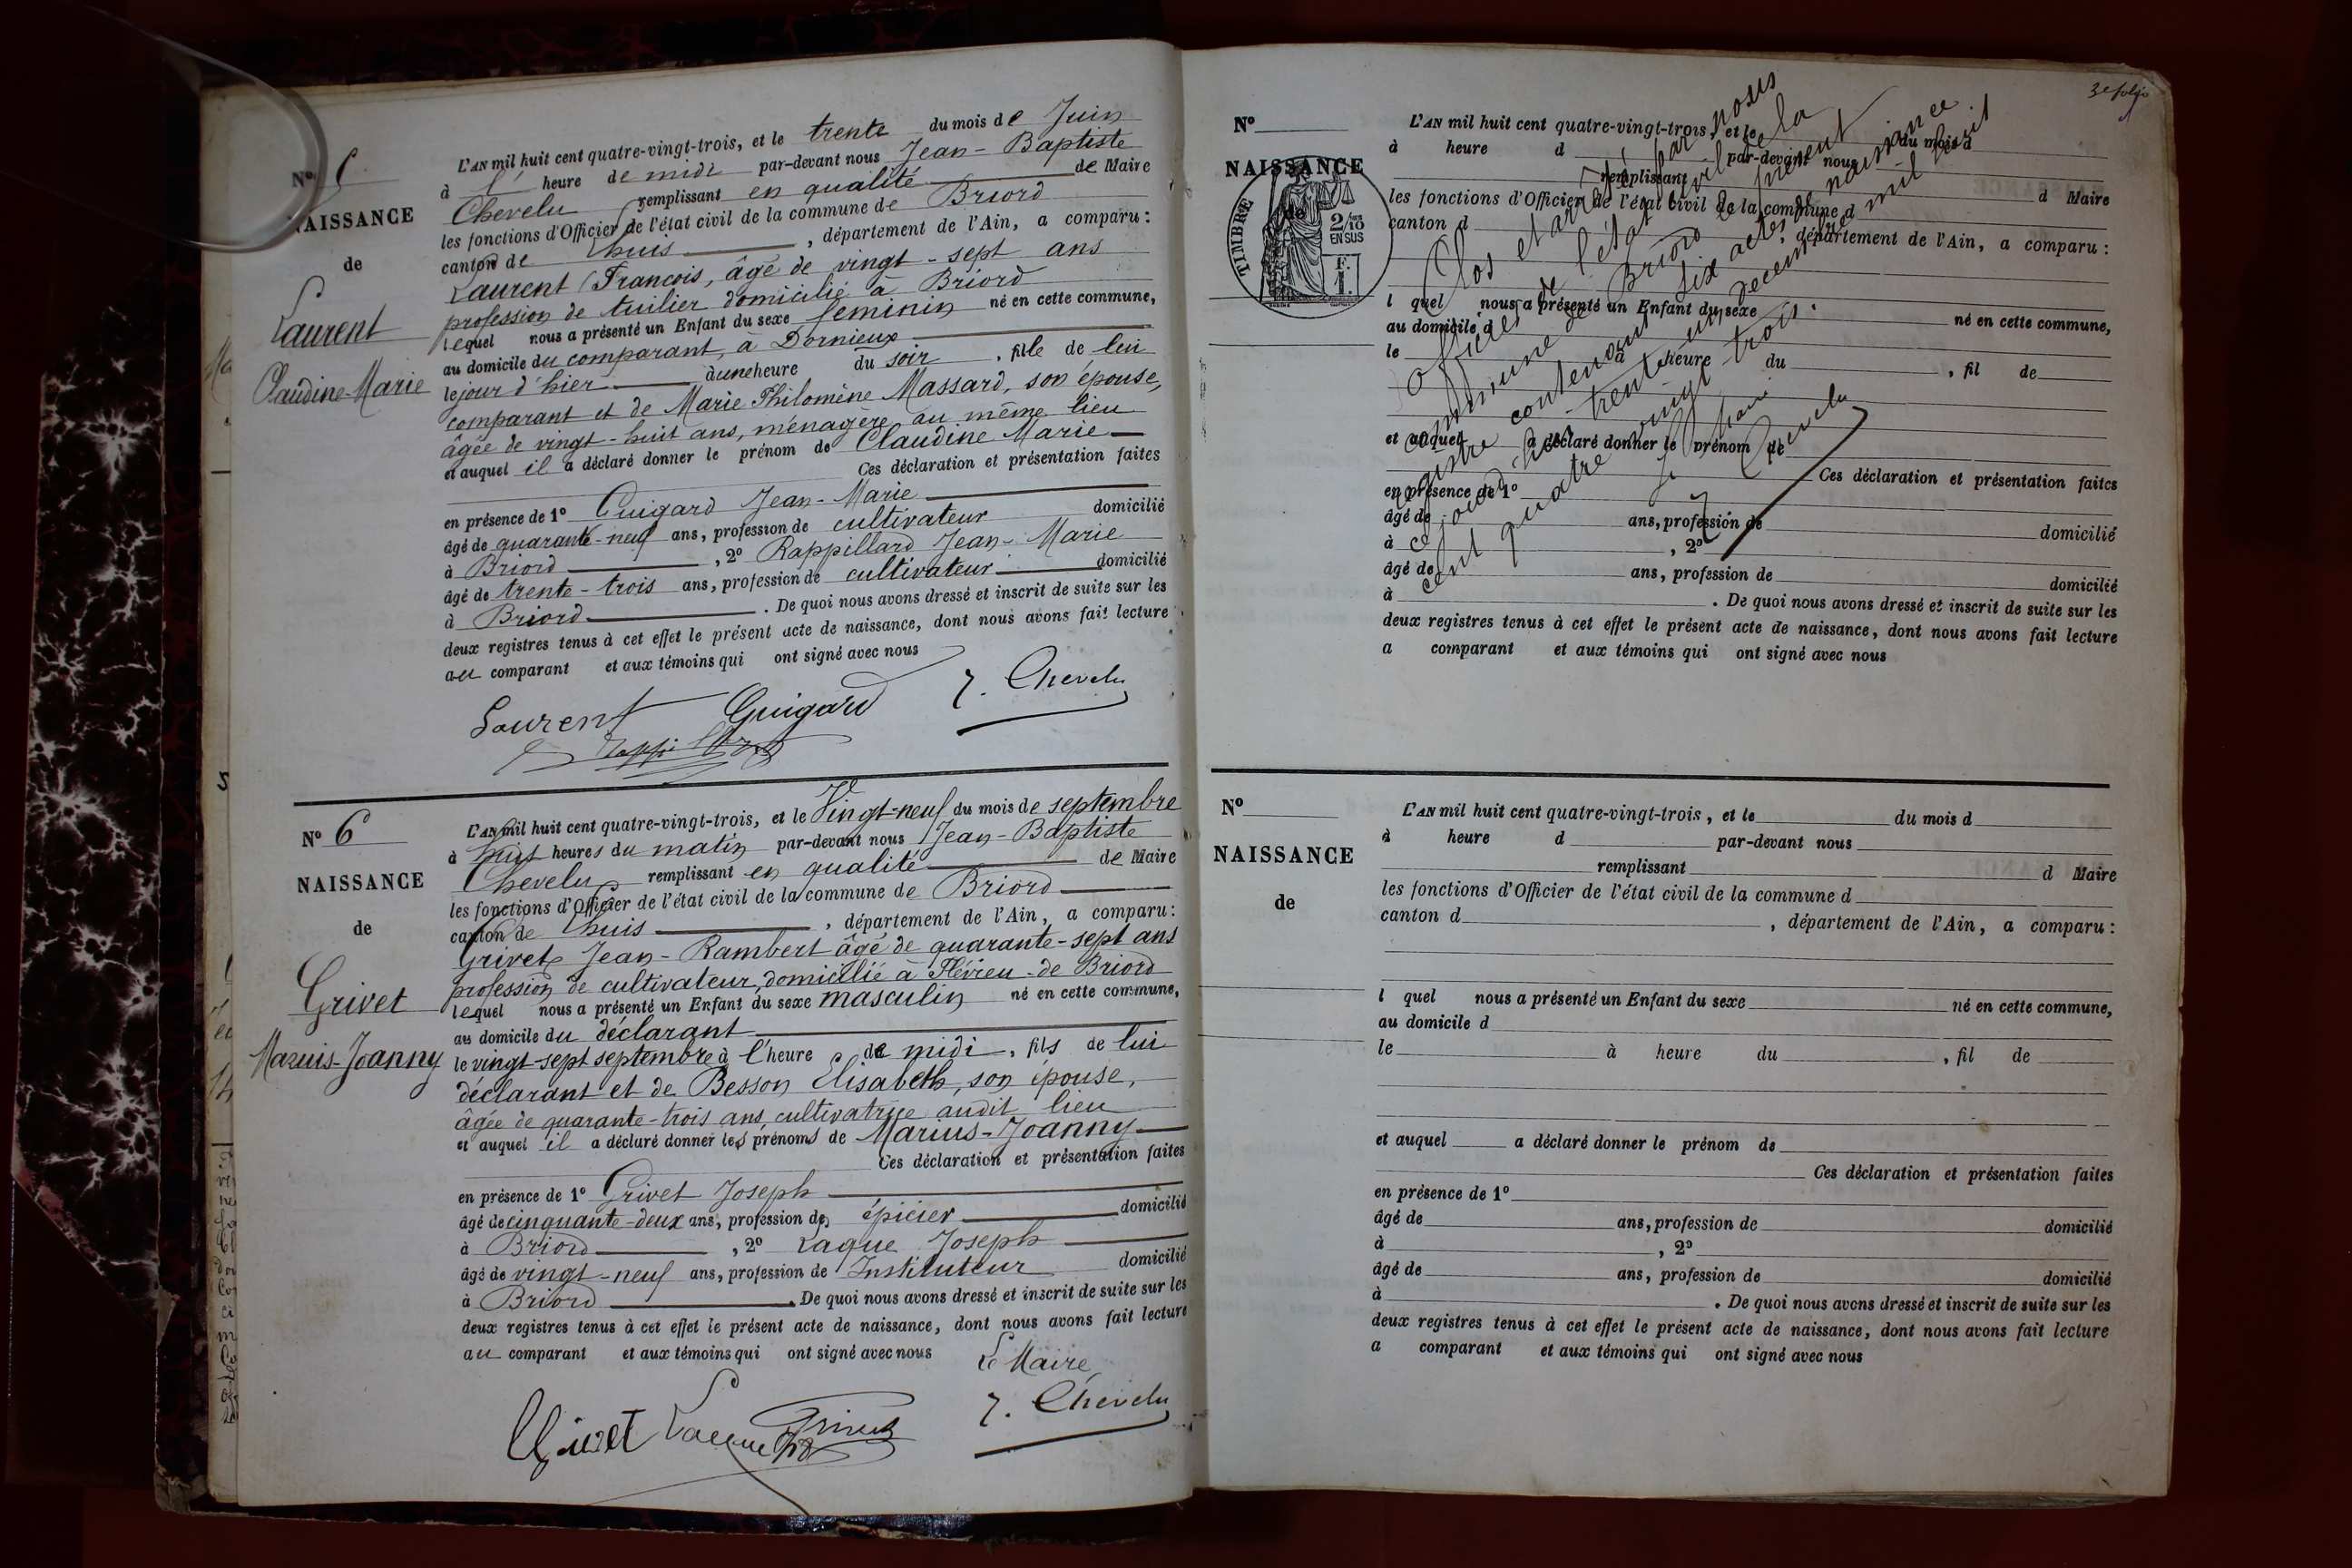 NAISSANCE
de
Laurent
Claudine-Marie
L'AN mil huit cent quatre-vingt-trois, et le trente du mois de Juin
à l' heure de midi par-devant nous Jean-Baptiste
Chevelu remplissant en qualité de Maire
les fonctions d'Officier de l'état civil de la commune de Briord
canton de Lhuis, département de l'Ain, a comparu :
Laurent François, âgé de vingt-sept ans
profession de tuilier domicilié à Briord
lequel nous a présenté un Enfant du sexe feminin né en cette commune,
au domicile du comparant, à Dornieux
le jour d'hier à une heure du soir, fille de lui
comparant et de Marie Philomène Massard, son épouse,
âgée de vingt-huit ans, ménagère au même lieu
et auquel il a déclaré donner le prénom de Claudine Marie
Ces déclaration et présentation faites
en présence de 1º Guigard Jean-Marie
âgé de quarante-neuf ans, profession de cultivateur domicilié
à Briord, 2º Rappillard Jean-Marie
âgé de trente-trois ans, profession de cultivateur domicilié
à Briord. De quoi nous avons dressé et inscrit de suite sur les
deux registres tenus à cet effet le présent acte de naissance, dont nous avons fait lecture
au comparant et aux témoins qui ont signé avec nous
Laurent Guigard J. Chevelu
Nº 6
NAISSANCE
de
Grivet
Maruis-Joanny
L'AN mil huit cent quatre-vingt-trois, et le Vingt-neuf du mois de septembre
à huit heures du matin par-devant nous Jean-Baptiste
Chevelu remplissant en qualité de Maire
les fonctions d'Officier de l'état civil de la commune de Briord
canton de Lhuis, département de l'Ain, a comparu :
Grivet Jean-Rambert âgé de quarante-sept ans
profession de cultivateur, domicilié à Flévieu-de Briord
lequel nous a présenté un Enfant du sexe masculin né en cette commune,
au domicile du déclarant
le vingt-sept septembre à l'heure de midi, fils de lui
déclarant et de Besson Elisabeth, son épouse,
âgée de quarante-trois ans, cultivatrice audit lieu
et auquel il a déclaré donner les prénoms de Marius-Joanny
Ces déclaration et présentation faites
en présence de 1º Grivet Joseph
âgé de cinquante-deux ans, profession de épicier domicilié
à Briord, 2º Laque Joseph
âgé de vingt-neuf ans, profession de Instituteur domicilié
à Briord. De quoi nous avons dressé et inscrit de suite sur les
deux registres tenus à cet effet le présent acte de naissance, dont nous avons fait lecture
au comparant et aux témoins qui ont signé avec nous
Le Maire
Grivet Laque J. Chevelu
3e folio
Nº
NAISSANCE
de
TIMBRE
2/10 EN SUS
F. 1.
L'AN mil huit cent quatre-vingt-trois, et le du mois d
à heure d par-devant nous
remplissant d Maire
les fonctions d'Officier de l'état civil de la commune d
canton d, département de l'Ain, a comparu :
l quel nous a présenté un Enfant du sexe né en cette commune,
au domicile d
le à heure du, fil de
et auquel a déclaré donner le prénom de
Ces déclaration et présentation faites
en présence de 1º
âgé de ans, profession de domicilié
à, 2º
âgé de ans, profession de domicilié
à. De quoi nous avons dressé et inscrit de suite sur les
deux registres tenus à cet effet le présent acte de naissance, dont nous avons fait lecture
a comparant et aux témoins qui ont signé avec nous
Clos et arrêté par nous
officier de l'état civil de la
commune de Briord le présent
registre contenant six actes de naissance
ce jourd'hui trente-un décembre mil huit
cent quatre vingt trois.
le Maire
J. Chevelu
Nº
NAISSANCE
de
L'AN mil huit cent quatre-vingt-trois, et le du mois d
à heure d par-devant nous
remplissant d Maire
les fonctions d'Officier de l'état civil de la commune d
canton d, département de l'Ain, a comparu :
l quel nous a présenté un Enfant du sexe né en cette commune,
au domicile d
le à heure du, fil de
et auquel a déclaré donner le prénom de
Ces déclaration et présentation faites
en présence de 1º
âgé de ans, profession de domicilié
à, 2º
âgé de ans, profession de domicilié
à. De quoi nous avons dressé et inscrit de suite sur les
deux registres tenus à cet effet le présent acte de naissance, dont nous avons fait lecture
a comparant et aux témoins qui ont signé avec nous